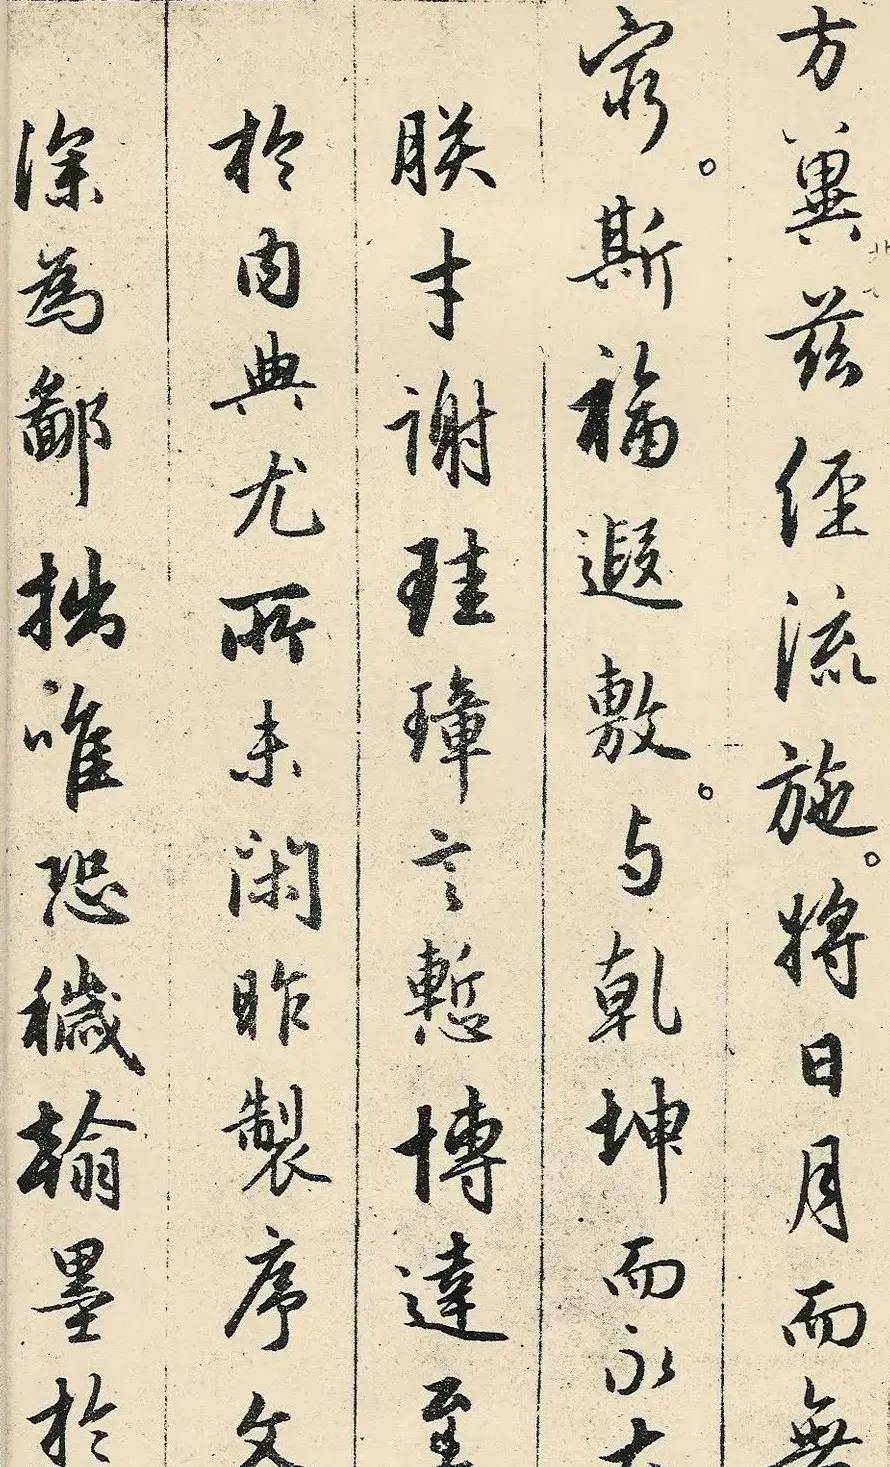 方冀茲經流施。將日月而無
窮。斯福遐敷。与乾坤而永大
朕才謝珪璋言慙博達至
於内典尤所未閑昨製序文
深為鄙拙唯恐穢翰墨於